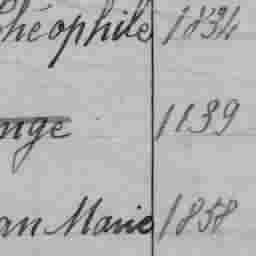 Théophile 1834
nge 1139
an Marie 1858